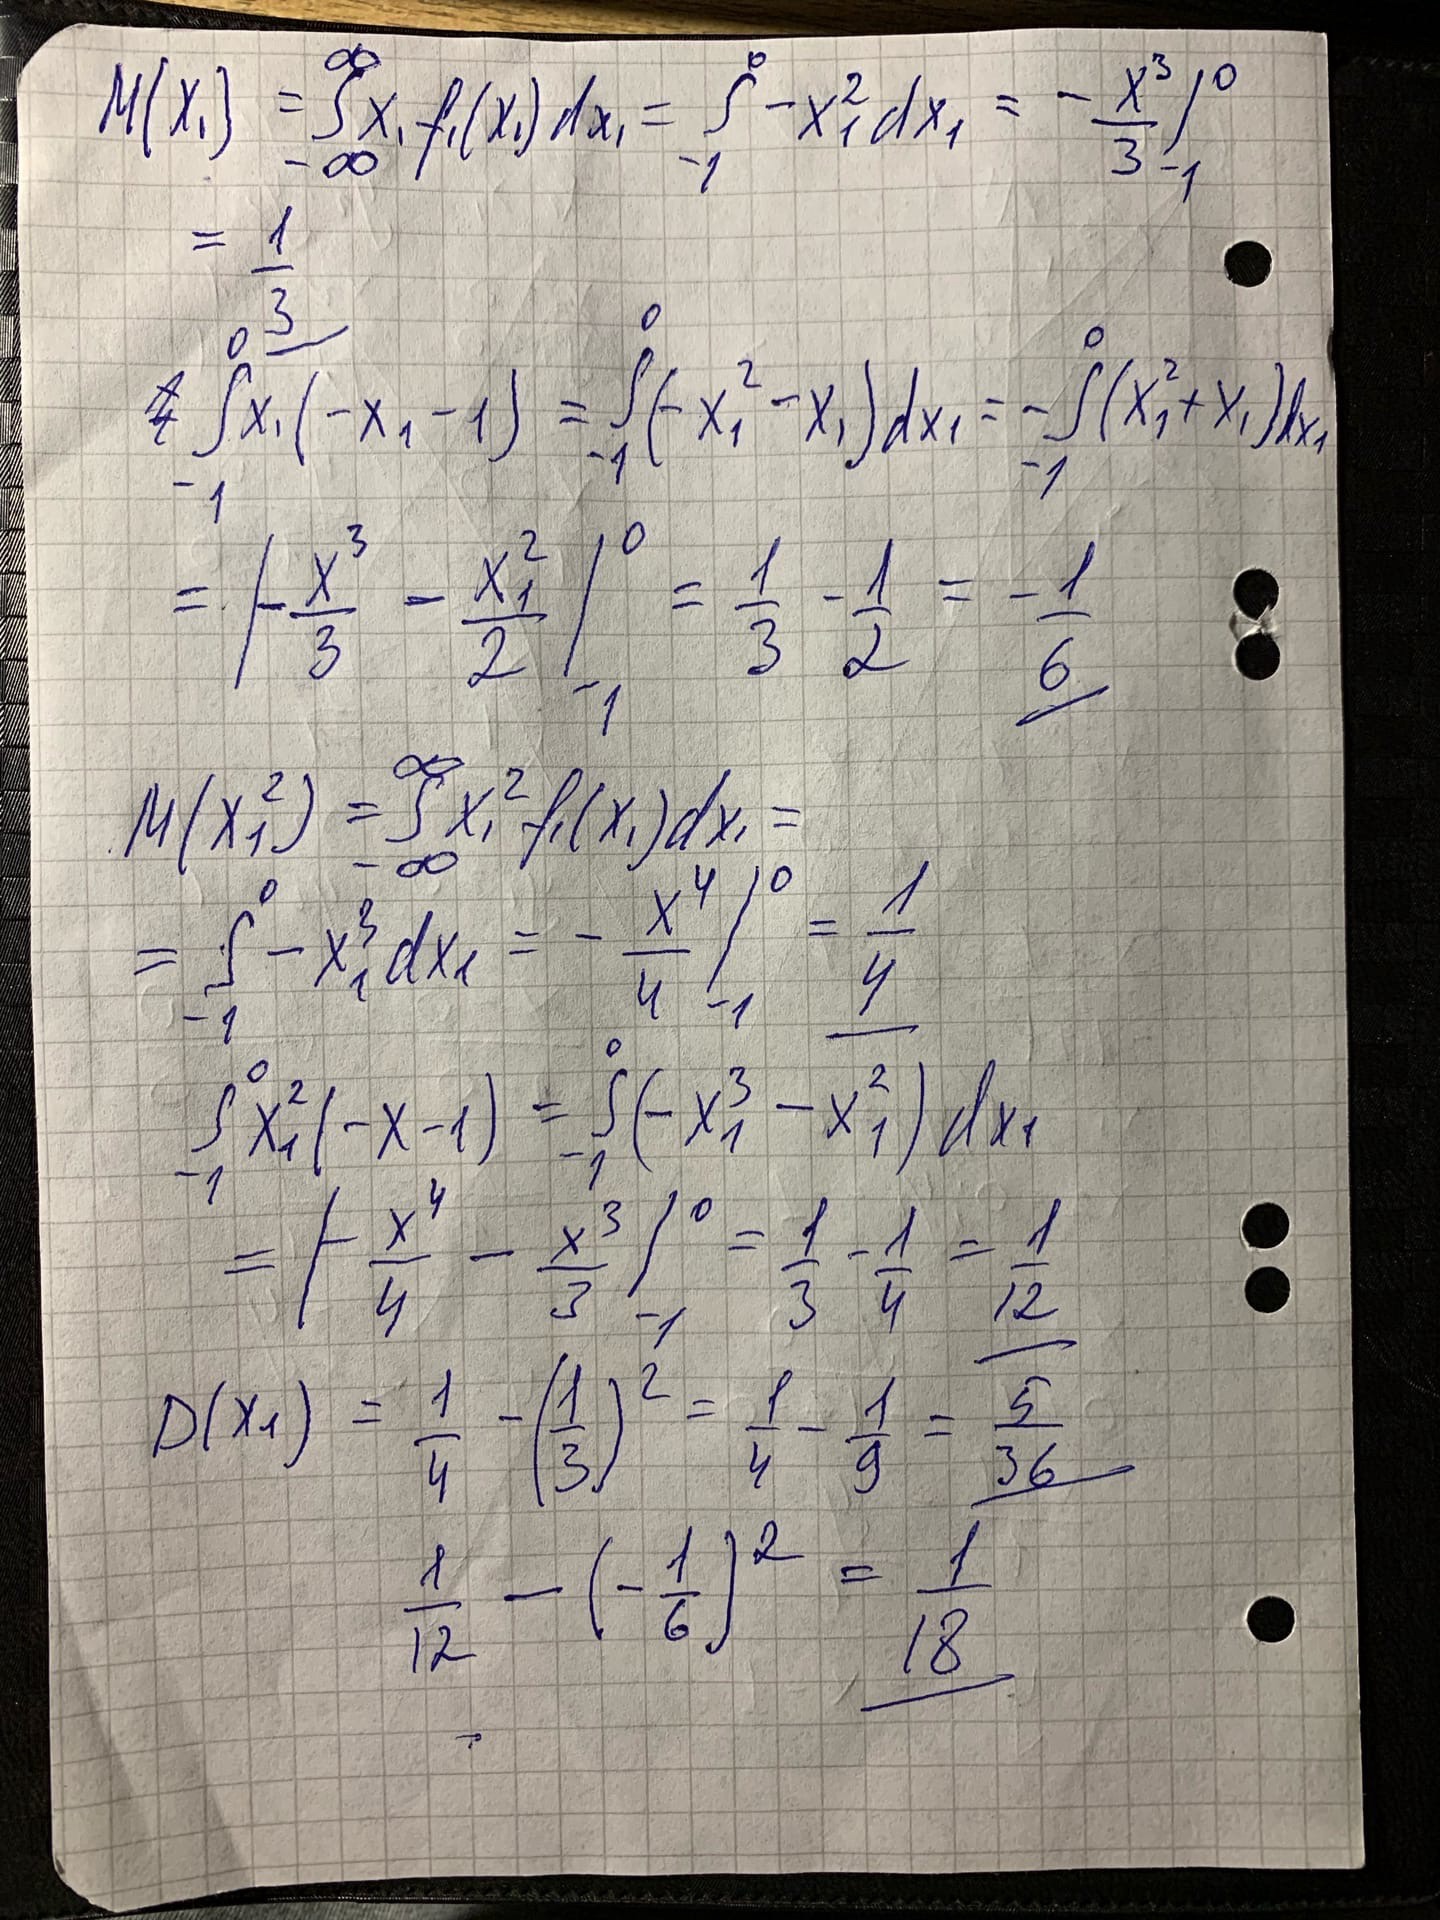 M(X₁) = ∫_{-∞}^{∞} x₁ f₁(x₁) dx₁ = ∫_{-1}^{0} -x₁² dx₁ = - x³/3 |_{-1}^{0}
= 1/3
∫_{-1}^{0} x₁(-x₁ - 1) = ∫_{-1}^{0} (-x₁² - x₁) dx₁ = - ∫_{-1}^{0} (x₁² + x₁) dx₁
= | - x³/3 - x₁²/2 |_{-1}^{0} = 1/3 - 1/2 = - 1/6
M(x₁²) = ∫_{-∞}^{∞} x₁² f₁(x₁) dx₁ =
= ∫_{-1}^{0} -x₁³ dx₁ = - x⁴/4 |_{-1}^{0} = 1/4
∫_{-1}^{0} x₁²(-x - 1) = ∫_{-1}^{0} (-x₁³ - x₁²) dx₁
= | - x⁴/4 - x³/3 |_{-1}^{0} = 1/3 - 1/4 = 1/12
D(x₁) = 1/4 - (1/3)² = 1/4 - 1/9 = 5/36
1/12 - (-1/6)² = 1/18